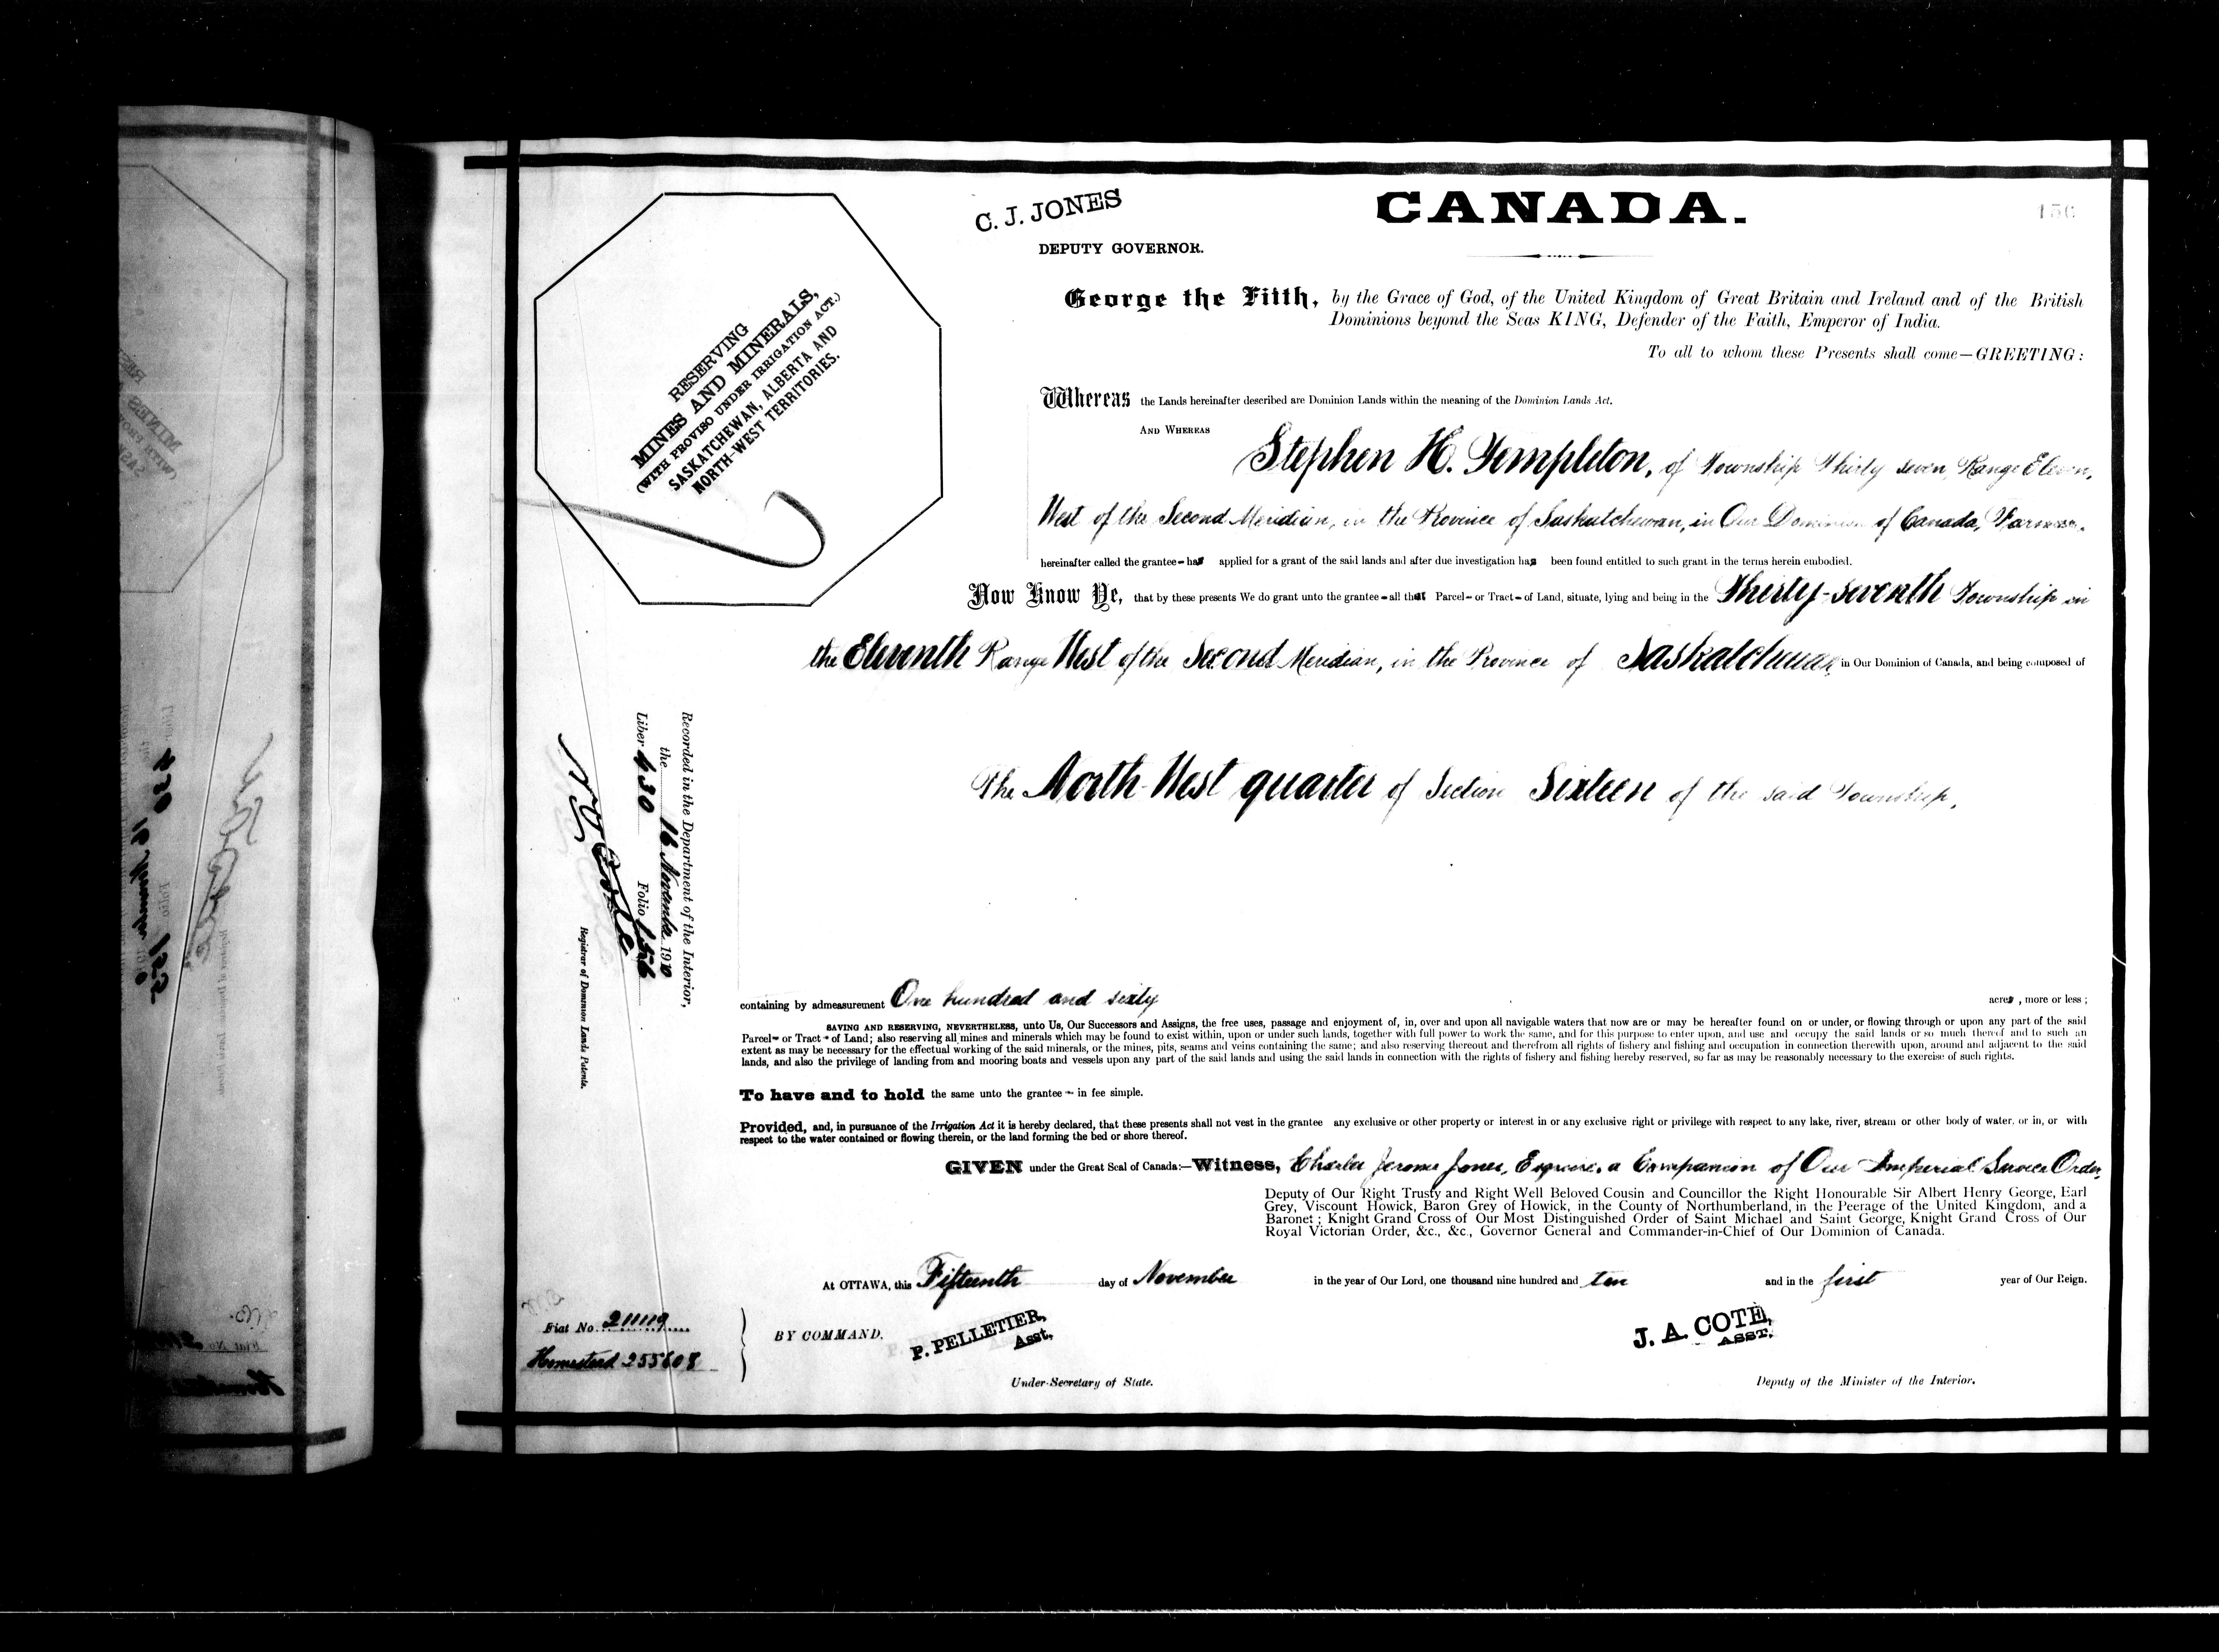 C. J. JONES
DEPUTY GOVERNOR.
CANADA.
156
RESERVING
MINES AND MINERALS,
(WITH PROVISO UNDER IRRIGATION ACT.)
SASKATCHEWAN, ALBERTA AND
NORTH-WEST TERRITORIES.
George the Fifth, by the Grace of God, of the United Kingdom of Great Britain and Ireland and of the British
Dominions beyond the Seas KING, Defender of the Faith, Emperor of India.
To all to whom these Presents shall come—GREETING:
Whereas the Lands hereinafter described are Dominion Lands within the meaning of the Dominion Lands Act.
AND WHEREAS
Stephen H. Templeton, of Township Thirty seven, Range Eleven,
West of the Second Meridian, in the Province of Saskatchewan, in Our Dominion of Canada, Farmer.
hereinafter called the grantee - has applied for a grant of the said lands and after due investigation has been found entitled to such grant in the terms herein embodied.
Now Know Ye, that by these presents We do grant unto the grantee - all that Parcel - or Tract - of Land, situate, lying and being in the Thirty-seventh Township in
the Eleventh Range West of the Second Meridian, in the Province of Saskatchewan, in Our Dominion of Canada, and being composed of
The North West quarter of Section Sixteen of the said Township,
Recorded in the Department of the Interior,
the 16 November 1910
Liber 430 Folio 156
Registrar of Dominion Lands Patents.
containing by admeasurement One hundred and sixty acres, more or less;
SAVING AND RESERVING, NEVERTHELESS, unto Us, Our Successors and Assigns, the free uses, passage and enjoyment of, in, over and upon all navigable waters that now are or may be hereafter found on or under, or flowing through or upon any part of the said
Parcel - or Tract - of Land; also reserving all mines and minerals which may be found to exist within, upon or under such lands, together with full power to work the same, and for this purpose to enter upon, and use and occupy the said lands or so much thereof and to such an
extent as may be necessary for the effectual working of the said minerals, or the mines, pits, seams and veins containing the same; and also reserving thereout and therefrom all rights of fishery and fishing and occupation in connection therewith upon, around and adjacent to the said
lands, and also the privilege of landing from and mooring boats and vessels upon any part of the said lands and using the said lands in connection with the rights of fishery and fishing hereby reserved, so far as may be reasonably necessary to the exercise of such rights.
To have and to hold the same unto the grantee - in fee simple.
Provided, and, in pursuance of the Irrigation Act it is hereby declared, that these presents shall not vest in the grantee any exclusive or other property or interest in or any exclusive right or privilege with respect to any lake, river, stream or other body of water, or in, or with
respect to the water contained or flowing therein, or the land forming the bed or shore thereof.
GIVEN under the Great Seal of Canada:—Witness, Charles Jerome Jones, Esquire, a Companion of Our Imperial Service Order,
Deputy of Our Right Trusty and Right Well Beloved Cousin and Councillor the Right Honourable Sir Albert Henry George, Earl
Grey, Viscount Howick, Baron Grey of Howick, in the County of Northumberland, in the Peerage of the United Kingdom, and a
Baronet; Knight Grand Cross of Our Most Distinguished Order of Saint Michael and Saint George, Knight Grand Cross of Our
Royal Victorian Order, &c., &c., Governor General and Commander-in-Chief of Our Dominion of Canada.
At OTTAWA, this Fifteenth day of November in the year of Our Lord, one thousand nine hundred and ten and in the first year of Our Reign.
Fiat No. 211119
Homestead 255608
BY COMMAND,
P. PELLETIER,
Asst.
Under-Secretary of State.
J. A. COTE,
ASST.
Deputy of the Minister of the Interior.